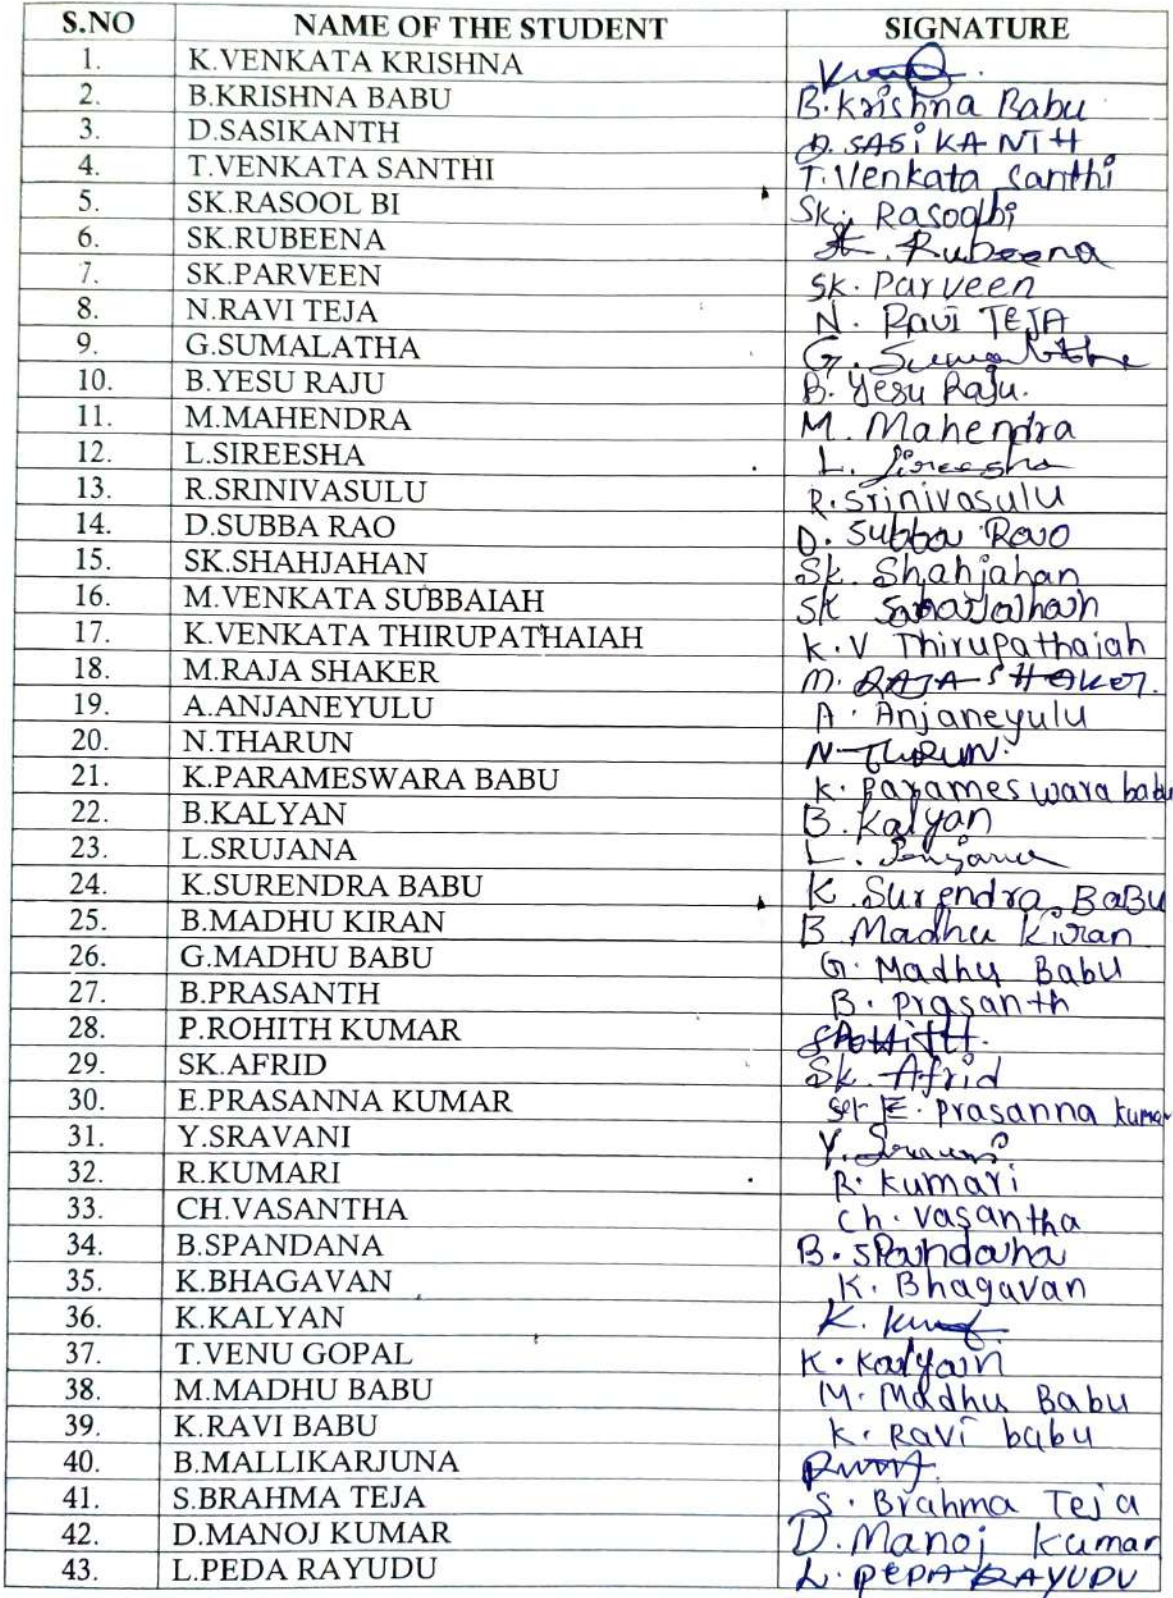 S.NO NAME OF THE STUDENT SIGNATURE
1. K.VENKATA KRISHNA
2. B.KRISHNA BABU B.Krishna Babu
3. D.SASIKANTH D. SASiKANTH
4. T.VENKATA SANTHI T.Venkata Santhi
5. SK.RASOOL BI Sk. Rasoolbi
6. SK.RUBEENA Sk. Rubeena
7. SK.PARVEEN SK. Parveen
8. N.RAVI TEJA N. Ravi TEJA
9. G.SUMALATHA G. Sumalatha
10. B.YESU RAJU B. Yesu Raju.
11. M.MAHENDRA M. Mahendra
12. L.SIREESHA L. Sireesha
13. R.SRINIVASULU R. Srinivasulu
14. D.SUBBA RAO D. Subba Rao
15. SK.SHAHJAHAN Sk. Shahjahan
16. M.VENKATA SUBBAIAH SK
17. K.VENKATA THIRUPATHAIAH K.V Thirupathaiah
18. M.RAJA SHAKER M. RAJA SHAKER.
19. A.ANJANEYULU A. Anjaneyulu
20. N.THARUN N THARUN.
21. K.PARAMESWARA BABU K. Parameswara babu
22. B.KALYAN B. Kalyan
23. L.SRUJANA L. Srujana
24. K.SURENDRA BABU K. Surendra BaBu
25. B.MADHU KIRAN B Madhu Kiran
26. G.MADHU BABU G. Madhu Babu
27. B.PRASANTH B. prasanth
28. P.ROHITH KUMAR
29. SK.AFRID Sk. Afrid
30. E.PRASANNA KUMAR E. prasanna kumar
31. Y.SRAVANI Y. Sravani
32. R.KUMARI R. kumari
33. CH.VASANTHA ch. vasantha
34. B.SPANDANA B. SPandana
35. K.BHAGAVAN K. Bhagavan
36. K.KALYAN K.
37. T.VENU GOPAL K. Kalyan
38. M.MADHU BABU M. Madhu Babu
39. K.RAVI BABU K. Ravi babu
40. B.MALLIKARJUNA
41. S.BRAHMA TEJA S. Brahma Teja
42. D.MANOJ KUMAR D. Manoj Kumar
43. L.PEDA RAYUDU L. PEDA RAYUDU